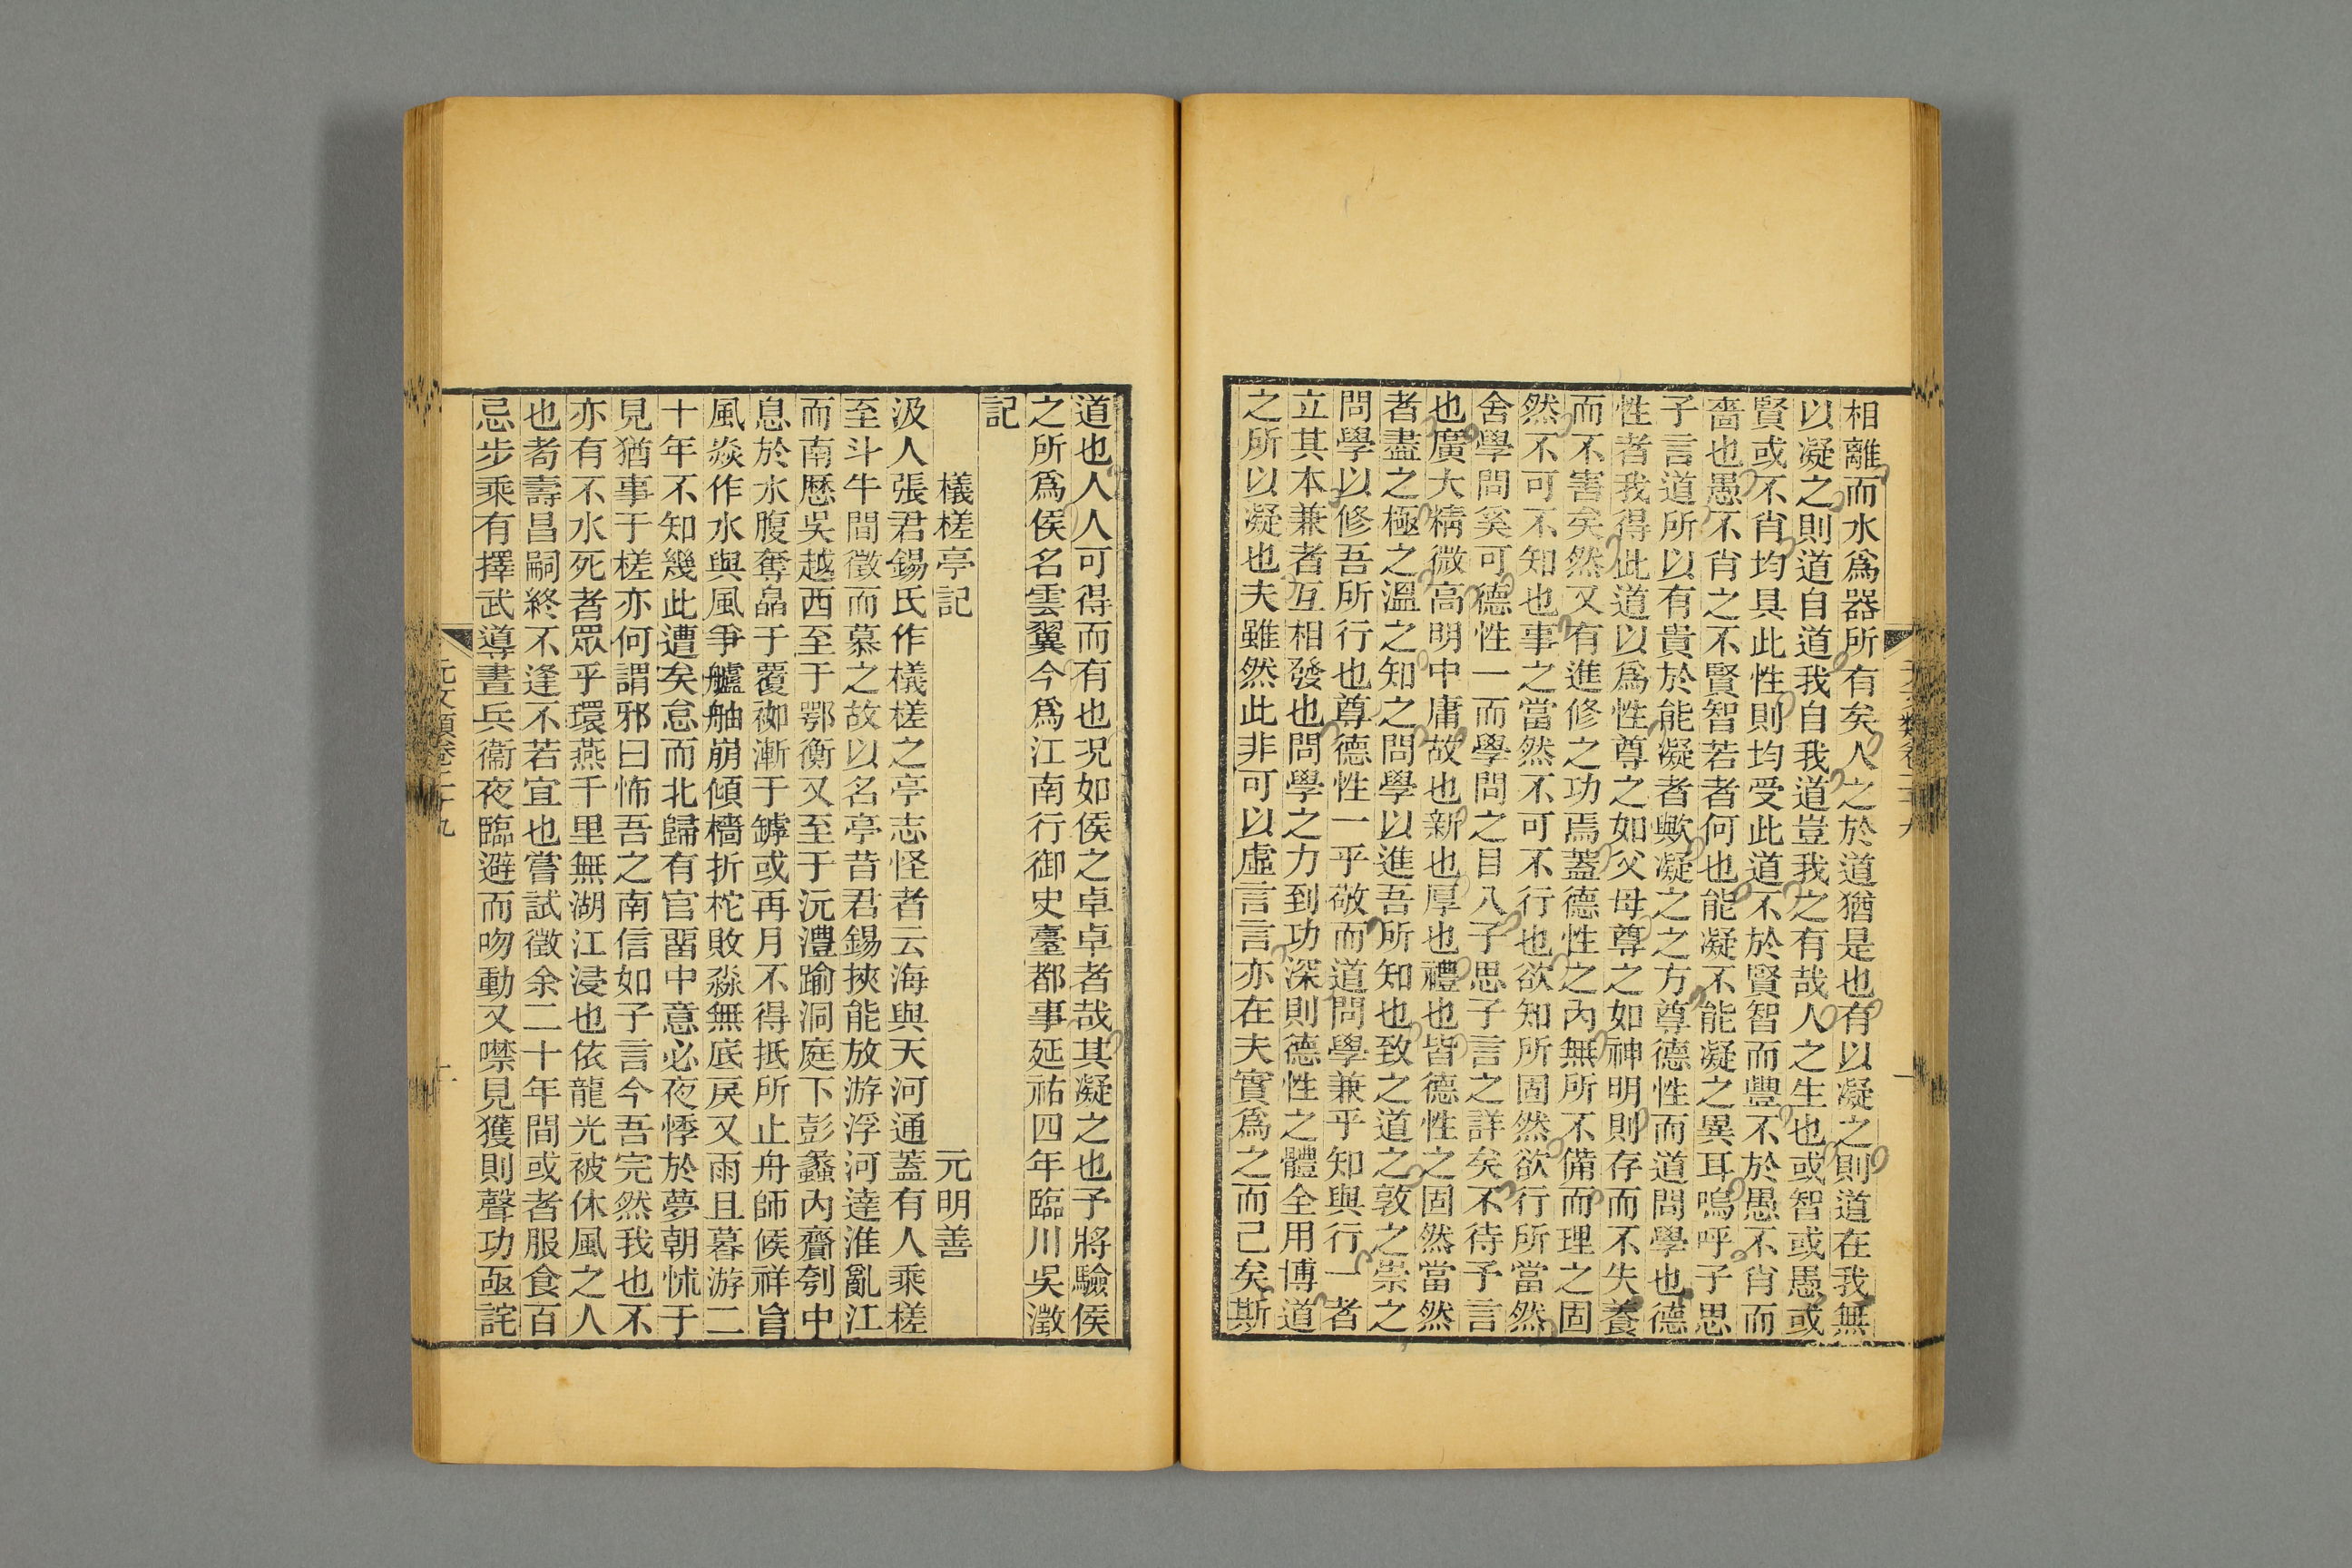 相離而水爲器所有矣人之於道猶是也有以凝之則道在我無
以凝之則道自道我自我道豈我之有哉人之生也或智或愚或
賢或不肖均具此性則均受此道不於賢智而豐不於愚不肖而
嗇也愚不肖之不賢智若者何也能凝不能凝之異耳嗚呼子思
子言道所以有貴於能凝者歟凝之之方尊德性而道問學也德
性者我得此道以爲性尊之如父母尊之如神明則存而不失養
而不害矣然又有進修之功焉蓋德性之內無所不備而理之固
然不可不知也事之當然不可不行也欲知所固然欲行所當然
舍學問奚可德性一而學問之目八子思子言之詳矣不待予言
也廣大精微高明中庸故也新也厚也禮也皆德性之固然當然
者盡之極之溫之知之問學以進吾所知也致之道之敦之崇之
問學以修吾所行也尊德性一乎敬而道問學兼乎知與行一者
立其本兼者互相發也問學之力到功深則德性之體全用博道
之所以凝也夫雖然此非可以虛言言亦在夫實爲之而己矣斯
道也人人可得而有也況如侯之卓卓者哉其凝之也予將驗侯
之所爲侯名雲翼今爲江南行御史臺都事延祐四年臨川吳澂
記
檥槎亭記
元明善
汲人張君錫氏作檥槎之亭志怪者云海與天河通蓋有人乘槎
至斗牛間徵而慕之故以名亭昔君錫挾能放游浮河達淮亂江
而南歷吳越西至于鄂衡又至于沅灃踰洞庭下彭蠡內齎刳中
息於水腹奪皛于覆袽漸于罅或再月不得抵所止舟師候祥旨
風焱作水與風爭艫舳崩傾檣折柁敗淼無底戾又雨且暮游二
十年不知幾此遭矣怠而北歸有官畱中意必夜悸於夢朝怵于
見猶事于槎亦何謂邪曰怖吾之南信如子言今吾完然我也不
亦有不水死者眾乎環燕千里無湖江浸也依龍光被休風之人
也耇壽昌嗣終不逢不若宜也嘗試徵余二十年間或者服食百
忌步乘有擇武導晝兵衞夜臨避而吻動又噤見獲則聲功亟詫
元文類卷二十九
十一